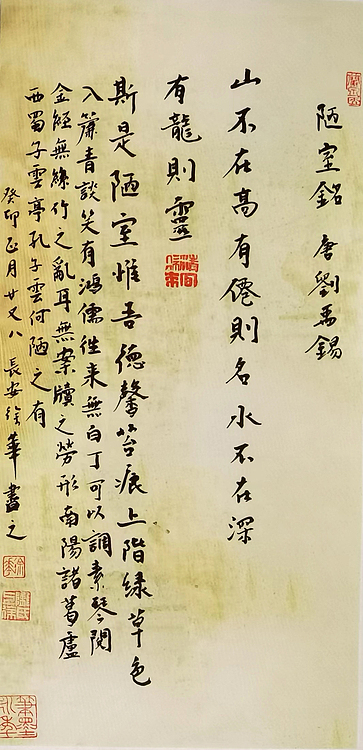 陋室銘 唐 劉禹錫
山不在高有僊則名水不在深
有龍則靈
斯是陋室惟吾德馨苔痕上階緑草色
入簾青談笑有鴻儒往来無白丁可以調素琴閱
金經無絲竹之亂耳無案牘之勞形南陽諸葛廬
西蜀子雲亭孔子雲何陋之有
癸卯正月廿又八 長安徐華書之